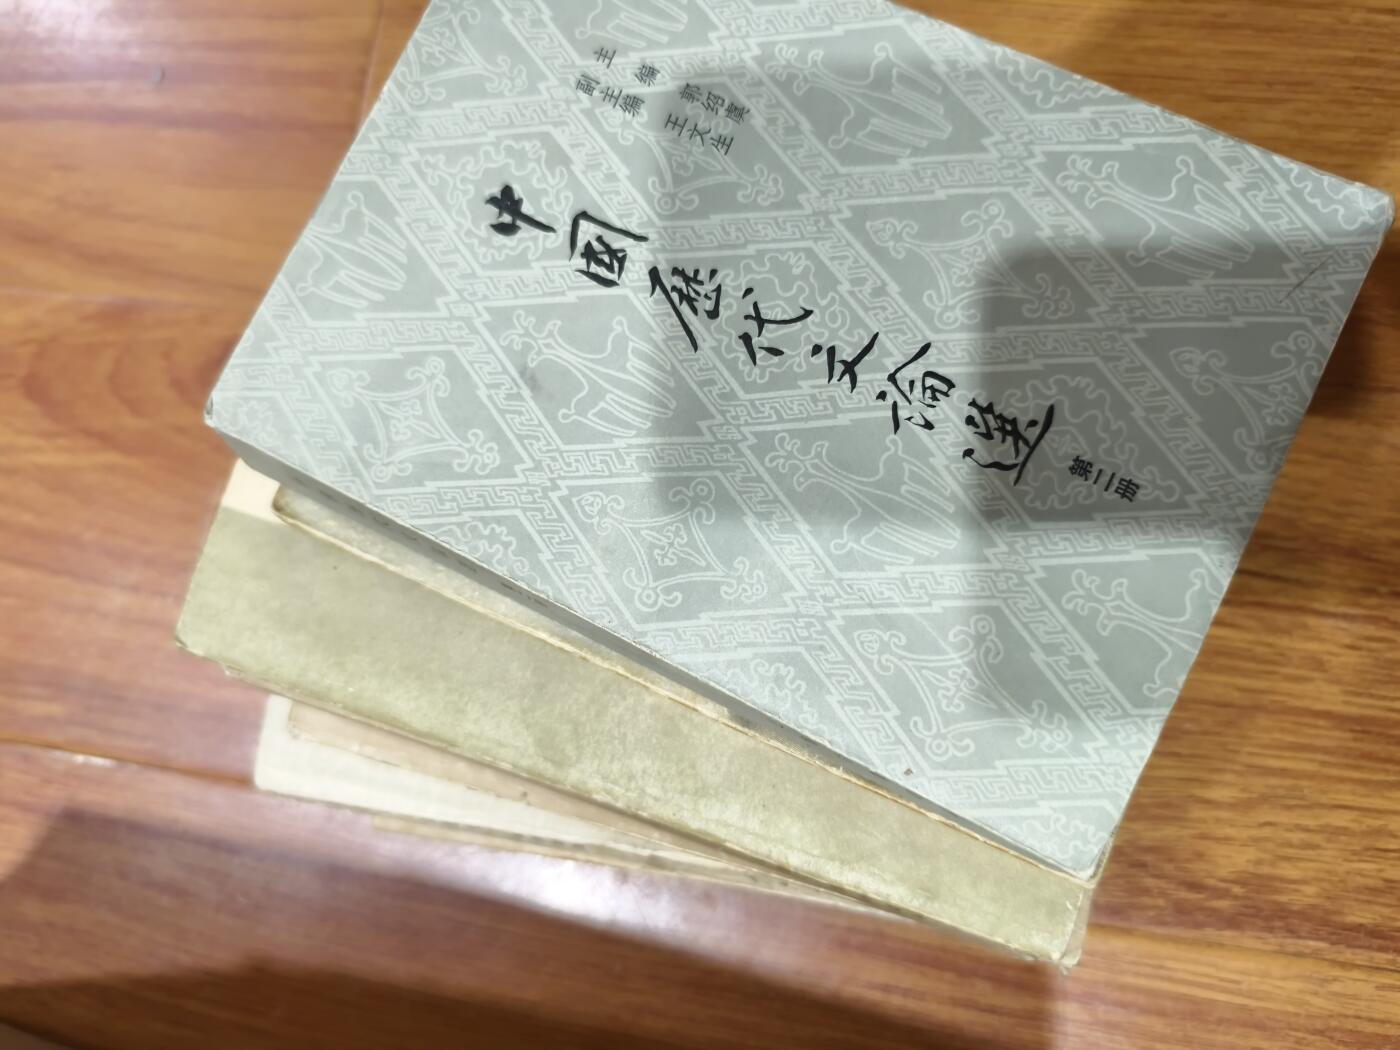 主　编　郭绍虞
副主编　王文生
中國歷代文論選
第二册